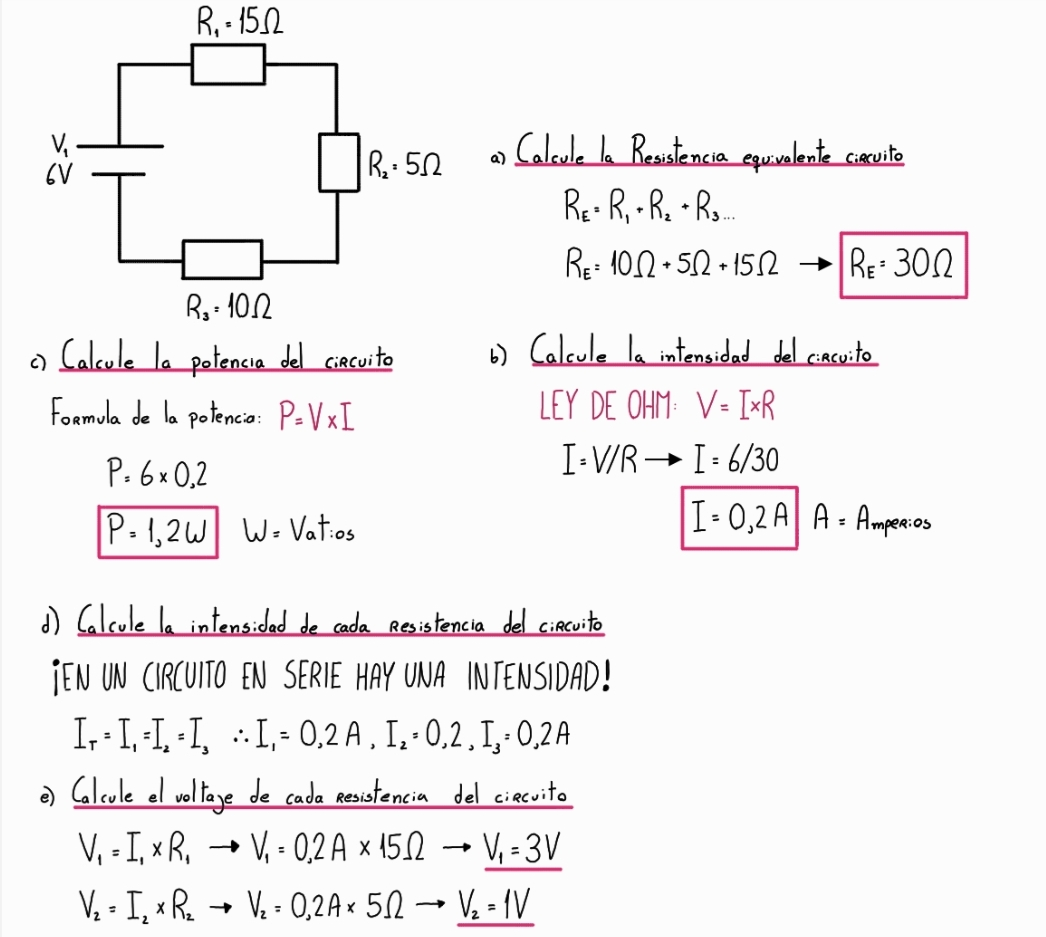 R₁ = 15Ω
V₁
6V
R₂ = 5Ω
R₃ = 10Ω
a) Calcule la Resistencia equivalente circuito
R_E = R₁ + R₂ + R₃...
R_E = 10Ω + 5Ω + 15Ω → R_E = 30Ω
b) Calcule la intensidad del circuito
LEY DE OHM: V = I×R
I = V/R → I = 6/30
I = 0,2 A A = Amperios
c) Calcule la potencia del circuito
Formula de la potencia: P = V x I
P = 6 × 0,2
P = 1,2 W W = Vatios
d) Calcule la intensidad de cada Resistencia del circuito
¡EN UN CIRCUITO EN SERIE HAY UNA INTENSIDAD!
I_T = I₁ = I₂ = I₃ ∴ I₁ = 0,2 A, I₂ = 0,2, I₃ = 0,2 A
e) Calcule el voltaje de cada Resistencia del circuito
V₁ = I₁ × R₁ → V₁ = 0,2 A × 15Ω → V₁ = 3V
V₂ = I₂ × R₂ → V₂ = 0,2A × 5Ω → V₂ = 1V